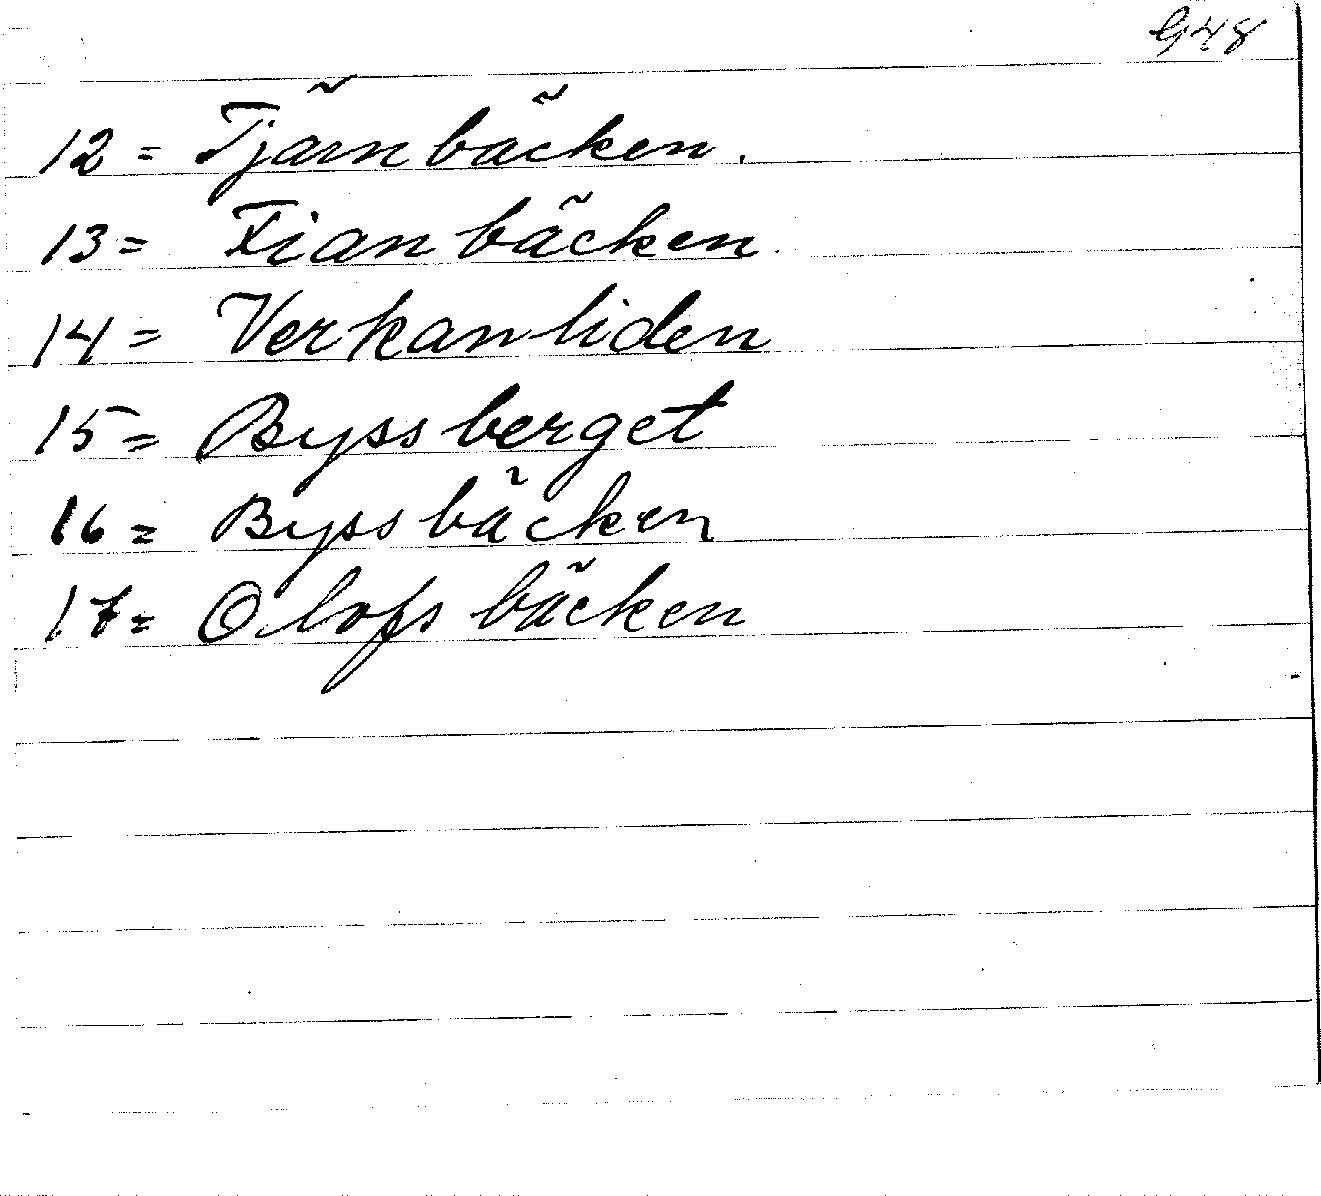 G48
12 = Tjärnbäcken.
13 = Fianbäcken
14 = Verkanliden
15 = Byssberget
16 = Byssbäcken
17 = Olofsbäcken